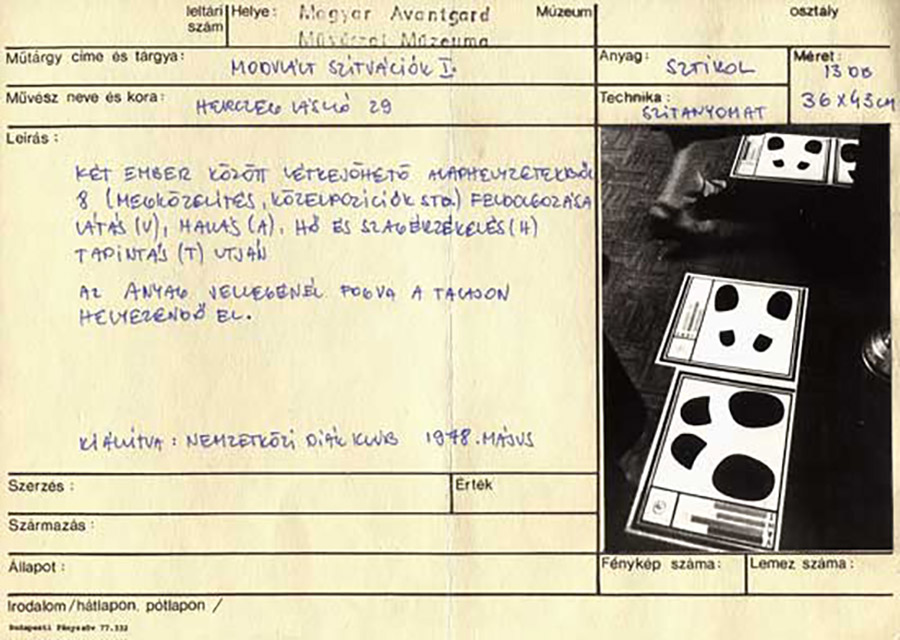 leltári szám
Helye: Magyar Avantgard Múzeum
Művészet Múzeuma
osztály
Műtárgy címe és tárgya: MODULÁLT SZITUÁCIÓK I.
Anyag: SZTIROL
Méret: 13 DB
36 X 43 cm
Művész neve és kora: HERCZEG LÁSZLÓ 29
Technika: SZITANYOMAT
Leírás:
KÉT EMBER KÖZÖTT LÉTREJÖHETŐ ALAPHELYZETEKBŐL
8 (MEGKÖZELITÉS, KÖZELPOZICIÓK STB.) FELDOLGOZÁSA
LÁTÁS (V), HALLÁS (A), HŐ ÉS SZAGÉRZÉKELÉS (H)
TAPINTÁS (T) UTJÁN
AZ ANYAG JELLEGÉNÉL FOGVA A TALAJON
HELYEZENDŐ EL.
KIÁLLITVA: NEMZETKÖZI DIÁK KLUB 1978. MÁJUS
Szerzés:
Érték
Származás:
Állapot:
Fénykép száma:
Lemez száma:
Irodalom/hátlapon, pótlapon /
Budapesti Fényszöv 77.332